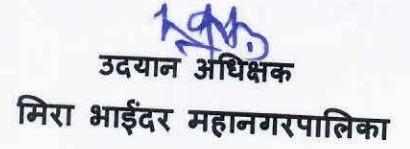 उदयान अधिक्षक
मिरा भाईंदर महानगरपालिका